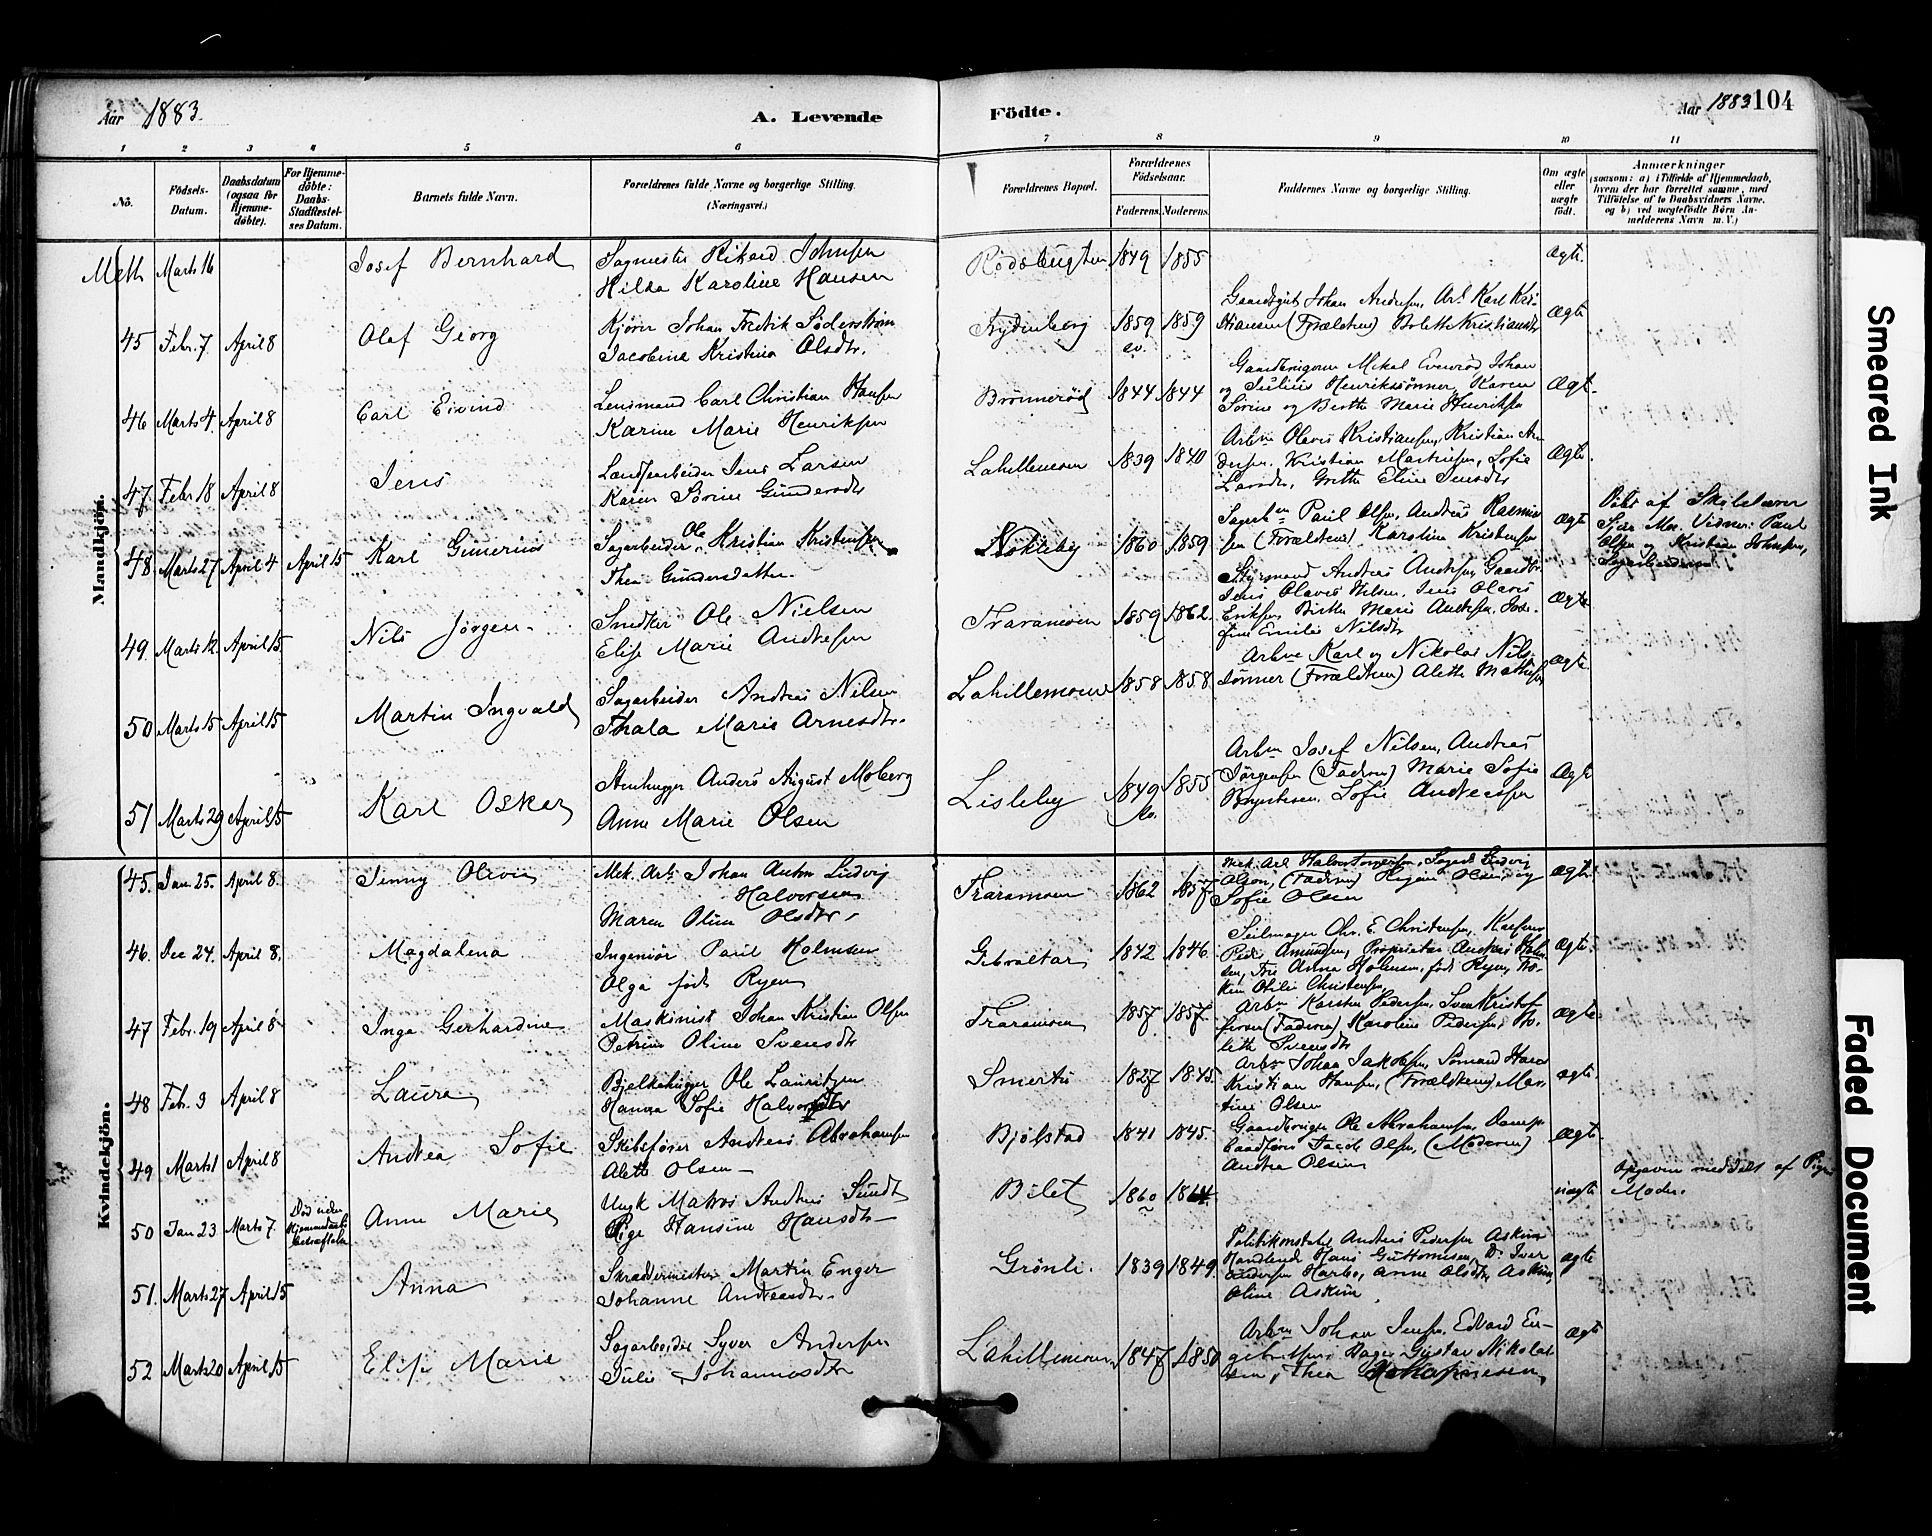 Aar 1883.
A. Levende
Födte.
Aar 1883 104
1 2 3 4 5 6 7 8 9 10 11
No.
Födsels-Datum.
Daabsdatum (ogsaa for Hjemme-döbte).
For Hjemme-döbte: Daabs-Stadfæstel-ses Datum.
Barnets fulde Navn.
Forældrenes fulde Navne og borgerlige Stilling.
(Næringsvei.)
Forældrenes Bopæl.
Forældrenes Födselsaar.
Faderens. Moderens.
Faddernes Navne og borgerlige Stilling.
Om ægte eller uægte födt.
Anmærkninger
(saasom: a) i Tilfælde af Hjemmedaab,
hvem der har forrettet samme, med
Tilföielse af to Daabsvidners Navne,
og b) ved uægtefödte Börn An-
melderens Navn m. V.)
Mandkjön.
Meth Marts 16 Josef Bernhard
Sagmester Rikard Johnsen
Hilda Karoline Hansen
Rödsbugten 1849 1855 Ægte.
45 Febr. 7. April 8 Olaf Georg
Kjörer Johan Fredrik Söderström
Jacobine Kristine Olsdtr.
Frydenberg 1859 1859
Gaardbgut Johan Andersen, Arb. Karl Kri-
stiansen (Forældrene) Bolette Kristiansdtr
Ægte
46 Marts 4. April 8 Carl Eivind
Lensmand Carl Christian Hansen
Karine Marie Henriksen
Brönneröd 1844 1844
og Julius Henrikssönner, Karen
Sörine og Berthe Marie Henriksen
Ægte.
47. Febr. 18 April 8 Jens
Landarbeider Jens Larsen
Karen Sörine Gundersdtr
Lahellemoen 1839 1840
Arbm Olavus Kristiansen, Kristian An-
dersen, Kristian Martinsen, Sofie
Larsdtr, Grethe Eline Jensdtr
Ægte.
48. Marts 27 April 4 April 15 Karl Gunerius
Sagarbeider Ole Kristian Kristensen
Thea Gundersdatter.
Nökleby 1860 1859
Sagarbm Paul Olsen, Andreas Rasmus-
sen (Forældrene), Karoline Kristensen
Ægte
Döbt af Skolelærer
Vidner: Paul
Olsen og Kristian Johnsen,
Sagarbeidere
49. Marts 12. April 15. Nils Jörgen
Snedker Ole Nielsen
Elise Marie Andresen
Traramoen 1859 1862.
Styrmand Andreas Andresen, Gaardbr.
Jens Olaves Nilsen, Jens Olaves
Eriksen, Birthe Marie Andresen, Jose-
fine Emilie Nilsdtr
Ægte
50 Marts 15 April 15 Martin Ingvald
Sagarbeider Andreas Nilsen
Thala Marie Arnesdtr.
Lahellemoen 1858 1858.
Arbme Karl og Nikolai Nils-
sönner (Forældrene) Alette Mathisen
Ægte.
51 Marts 29 April 15 Karl Oskar
Stenhugger Anders August Moberg
Anne Marie Olsen
Lisleby 1849 1855
Arbm Josef Nilsen, Andreas
Jörgensen (Fadren) Marie Sofie
Sofie Andreassen
Ægte
Kvindekjön.
45. Jan 25. April 8. Jenny Olivie
Mek. Arb. Johan Anton Ludvig
Halvorsen
Maren Oline Olsdtr.
Traramoen 1862 1857
Olsen, (Fadren) Olsen, og
Sofie Olsen
Ægte.
46. Dec 24. April 8. Magdalena
Ingeniör Paul Holmsen
Olga födt Ryen
Gibraltar 1842 1846.
Seilmager Chr. E. Christensen, Kaptein
Peder Amundsen, Proprietær Anders Holm-
sen, Fru Anna Holmsen, födt Ryen, Frö-
ken Otilie Christensen.
Ægte.
47 Febr. 19 April 8 Inga Gerhardine
Maskinist Johan Kristian Olsen
Petrine Oline Svensdtr
Traramoen 1857. 1857.
Arbm Karsten Pedersen, Sven Kristof-
fersen (Fadren), Karoline Pedersen, Bo-
lette Svensdtr
Ægte
48 Feb. 9 April 8 Laura
Bjelkehugger Ole Lauritzen
Hanna Sofie Halvorsdtr
Smertu 1827 1845.
Arbm Johan Jakobsen, Sömand Hans
Kristian Hansen, (Forældrene) Mar-
tine Olsen
Ægte.
49 Marts 1 April 8 Andrea Sofie
Skibsförer Andreas Abrahamsen
Alette Olsen
Bjölstad 1841 1845.
Gaardbruger Ole Abrahamsen, Damp-
baadförer Jacob Olsen, (Moderen)
Andrea Olsen
Ægte.
50 Jan 23 Marts 7. Död uden Hjemmedaabs bekræftelse
Anne Marie
Ungk. Matros Andreas Sundt
Pige Hansine Hansdtr
Bilet 1860 1864.
uægte
Opgaven meddelt af Pigens
Moder.
51. Marts 27 April 15 Anna
Skræddermester Martin Enger
Johanne Andreasdtr.
Grönli. 1839 1849.
Politikonstabel Anders Pedersen Askim
Handlende Hans Guttormsen, Do Iver
Andersen Harbo, Anne Olsdtr Askim,
Oline Askim.
ægte
52 Marts 20 April 15 Elise Marie
Sagarbeider Syver Andersen
Julie Johannesdtr
Lahellemoen 1847 1850
Arbm Johan Jensen, Edvard En-
gebretsen, Bager Gustav Nikolai-
sen, Thea
Ægte
Smeared Ink
Faded Document